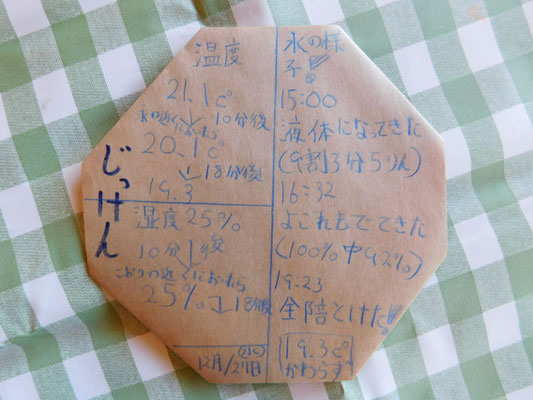 じっけん
温度
21.1c°
氷の近くにおいたら 10分後
20.1c°
18分後
19.3
湿度25%
10分後
こおりの近くにおいたら
25% 18分後
(水)
12月/29日
氷の様
子!!
15:00
液体になってきた
(9割3分5りん)
16:32
よごれもでてきた
(100%中92%)
19:23
全部とけた!!
19.3c°
かわらず